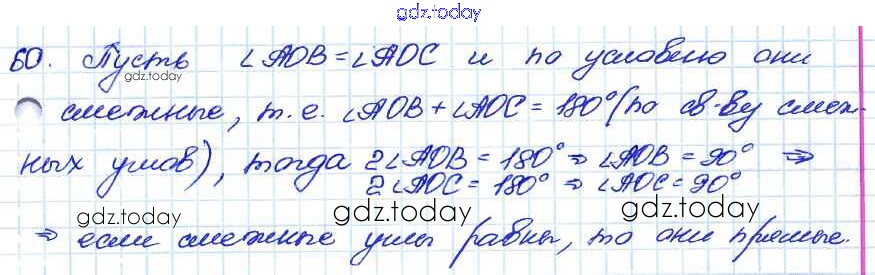 gdz.today
60. Пусть ∠AOB = ∠AOC и по условию они
gdz.today
смежные, т.е. ∠AOB + ∠AOC = 180° (по св-ву смеж-
ных углов), тогда 2∠AOB = 180° ⇒ ∠AOB = 90° ⇒
2∠AOC = 180° ⇒ ∠AOC = 90°
gdz.today gdz.today gdz.today
⇒ если смежные углы равны, то они прямые.